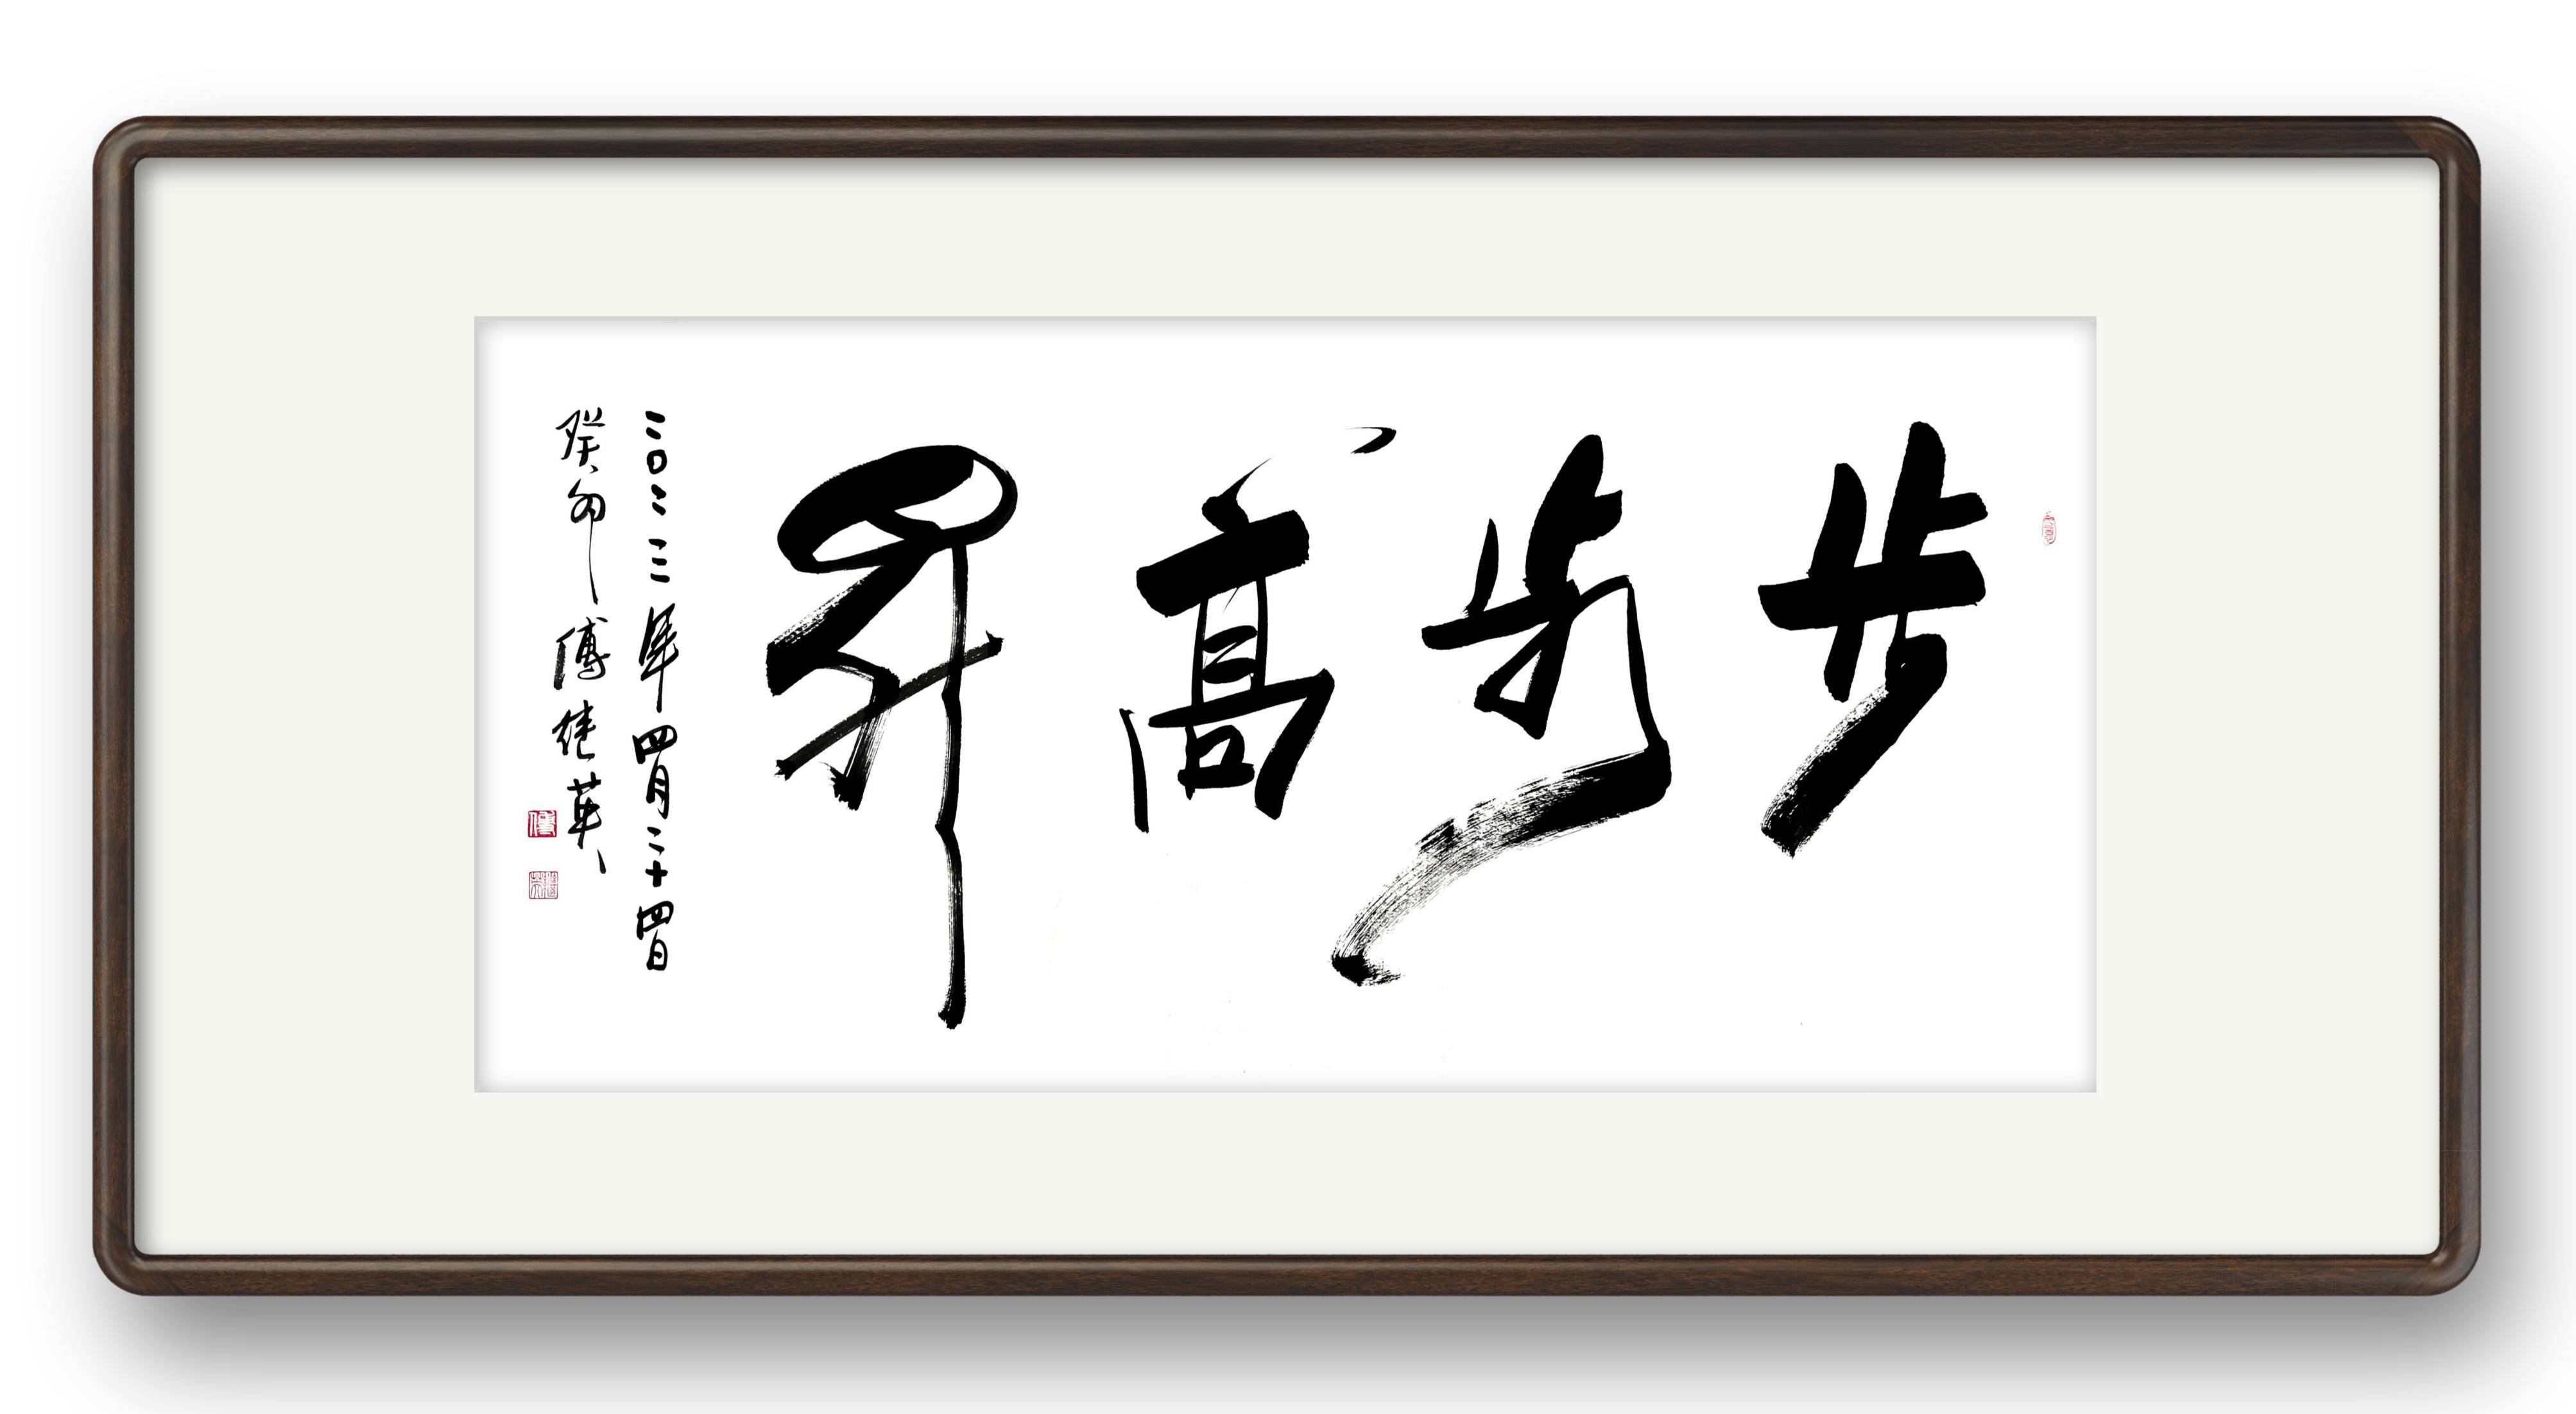 步步高昇
二〇二三年四月二十四日
癸卯 傅继英